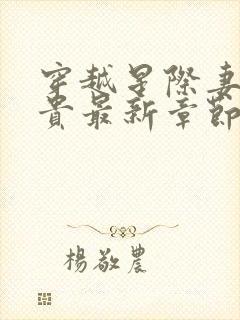 穿越星際妻
貴最新章節
楊敬農